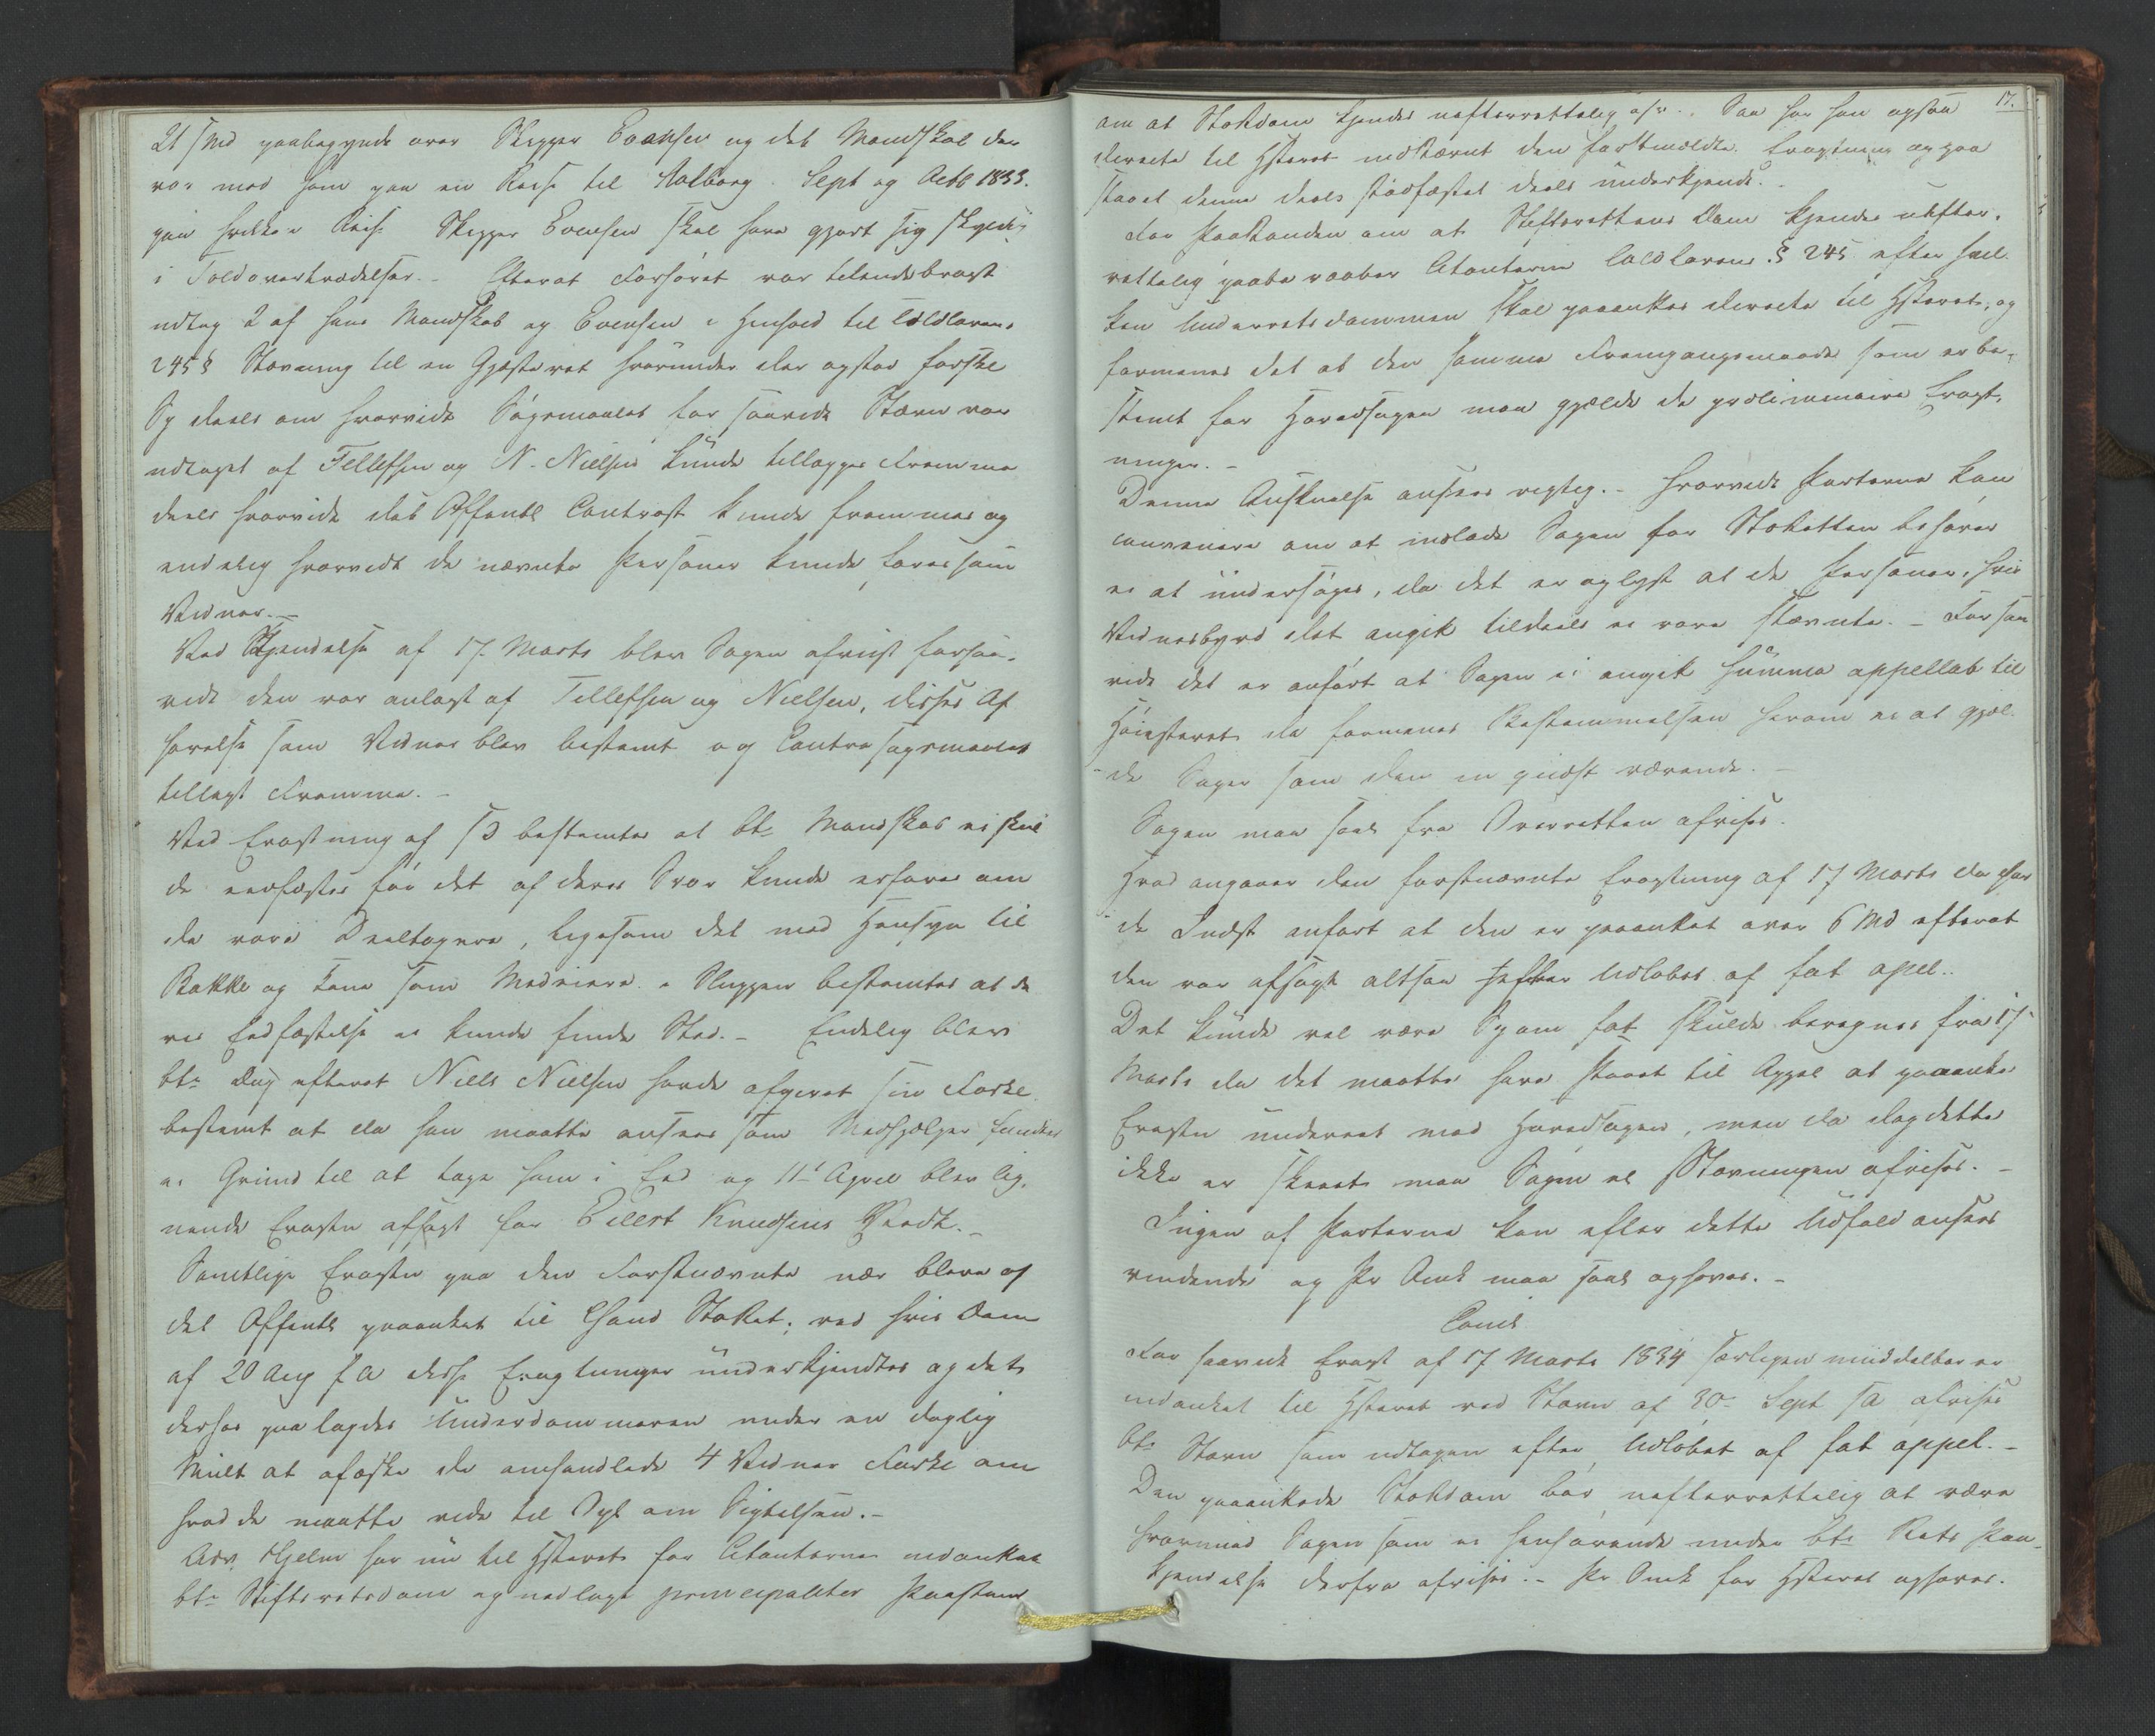 21 s Md paabegyndt over Skipper Evensen og det Mandskab der
var med ham paa en Reise til Aalborg Sept og Octb 1833.
paa hvilken Reise Skipper Evensen skal have gjort sig skyldig
i Toldovertrædelser. - Efterat Forhøret var tilendebragt
udtog 2 af hans Mandskab og Evensen i Henhold til Toldlovens
245 § Stævning til en Gjæsteret hvorunder der opstod forskl
Sp deels om hvorvidt Søgsmaalet for saavidt Stævn var
udtaget af Tellefsen og N. Nielsen kunde tillægges Fremme
deels hvorvidt det Offentl Contrast kunde fremmes og
endelig hvorvidt de nævnte Personer kunde føres som
Vidner. -
Ved Kjendelse af 17. Marts blev Sagen afviist forsaa-
vidt den var anlagt af Tellefsen og Nielsen, disses Af
hørelse som Vidner blev bestemt og Contrasøgsmaalet
tillagt Fremme. -
Ved Eragtning af sD bestemtes at bte Mandskab ei skul
de eedfæstes før det af deres Svar kunde erfares om
de vare Deeltagere, ligesom det med Hensyn til
Bakke og Lane som Medeiere i Sluppen bestemtes at de
res Eedfæstelse ei kunde finde Sted. - Endelig blev
bte Dag efterat Niels Nielsen havde afgivet sin Forkl
bestemt at da han maatte ansees som Medhjælper fandtes
ei Grund til at tage ham i Eed og 11te April blev lig-
nende Eragtn afsagt for Eilert Knudsens Vedk. -
Samtlige Eragtn paa den Førstnævnte nær bleve af
det Offentl paaanket til Chsand StsRet; ved hvis Dom
af 20 Aug f A disse Eragtninger underkjendtes og det
derhos paalagdes Underdommeren under en daglig
Mult at afæske de omhandlede 4 Vidner Forkl om
hvad de maatte vide til Opl om Sigtelsen. -
Adv. Hjelm har nu til Hsteret for Citanterne indanket
bte Stiftsretsdom og nedlagt principaliter Paastand
17.
om at StsRdom kjendes uefterrettelig osv. Saa har han ogsaa
directe til Hsteret indstævnt den førstmeldte Eragtning og paa
staaet denne deels stadfæstet deels underkjendt. -
For Paastanden om at Stiftsrettens Dom kjendes uefter-
rettelig paabe raaber Citanterne Toldlovens § 245 efter hvil-
ken Underretsdommen skal paaankes directe til Hsteret, og
formenes det at den samme Fremgangsmaade som er be-
stemt for Hovedsagen maa gjælde de prælimenaire Eragt-
ninger. -
Denne Anskuelse ansees rigtig. - Hvorvidt Parterne kan
convenere om at indlade Sagen for StsRetten behøves
ei at undersøges, da det er oplyst at de Personer, hvis
Vidnesbyrd det angik tildeels ei vare stævnte. - For saa
vidt det er anført at Sagen ei angik summa appellab til
Høiesteret da formenes Bestemmelsen herom ei at gjæl-
de Sager som den in qvæst værende. -
Sagen maa saal fra Overretten afvises.
Hvad angaaer den førstnævnte Eragtning af 17 Marts da har
de Indst anført at den er paaanket over 6 Md efterat
den var afsagt altsaa efter Udløbet af fat apel..
Det kunde vel være Sp om fat skulde beregnes fra 17
Marts da det maatte have staaet til Appel at paaanke
Eragtn underet med Hovedsagen, men da dog dette
ikke er skeet maa Sagen el Stævningen afvises. -
Ingen af Parterne kan efter dette Udfald ansees
vindende og Pr Omk maa saal ophæves. -
Concl
For saavidt Eragt af 17 Marts 1834 særligen umiddelbar er
indanket til Hsteret ved Stævn af 30te Sept sA afvises
bte Stævn som udtagen efter Udløbet af fat appel. -
Den paaankede StsRdom bør uefterrettelig at være
hvorimod Sagen som ei henhørende under bte Rets Paa-
kjendelse derfra afvises. - Pr Omk for Hsteret ophæves.